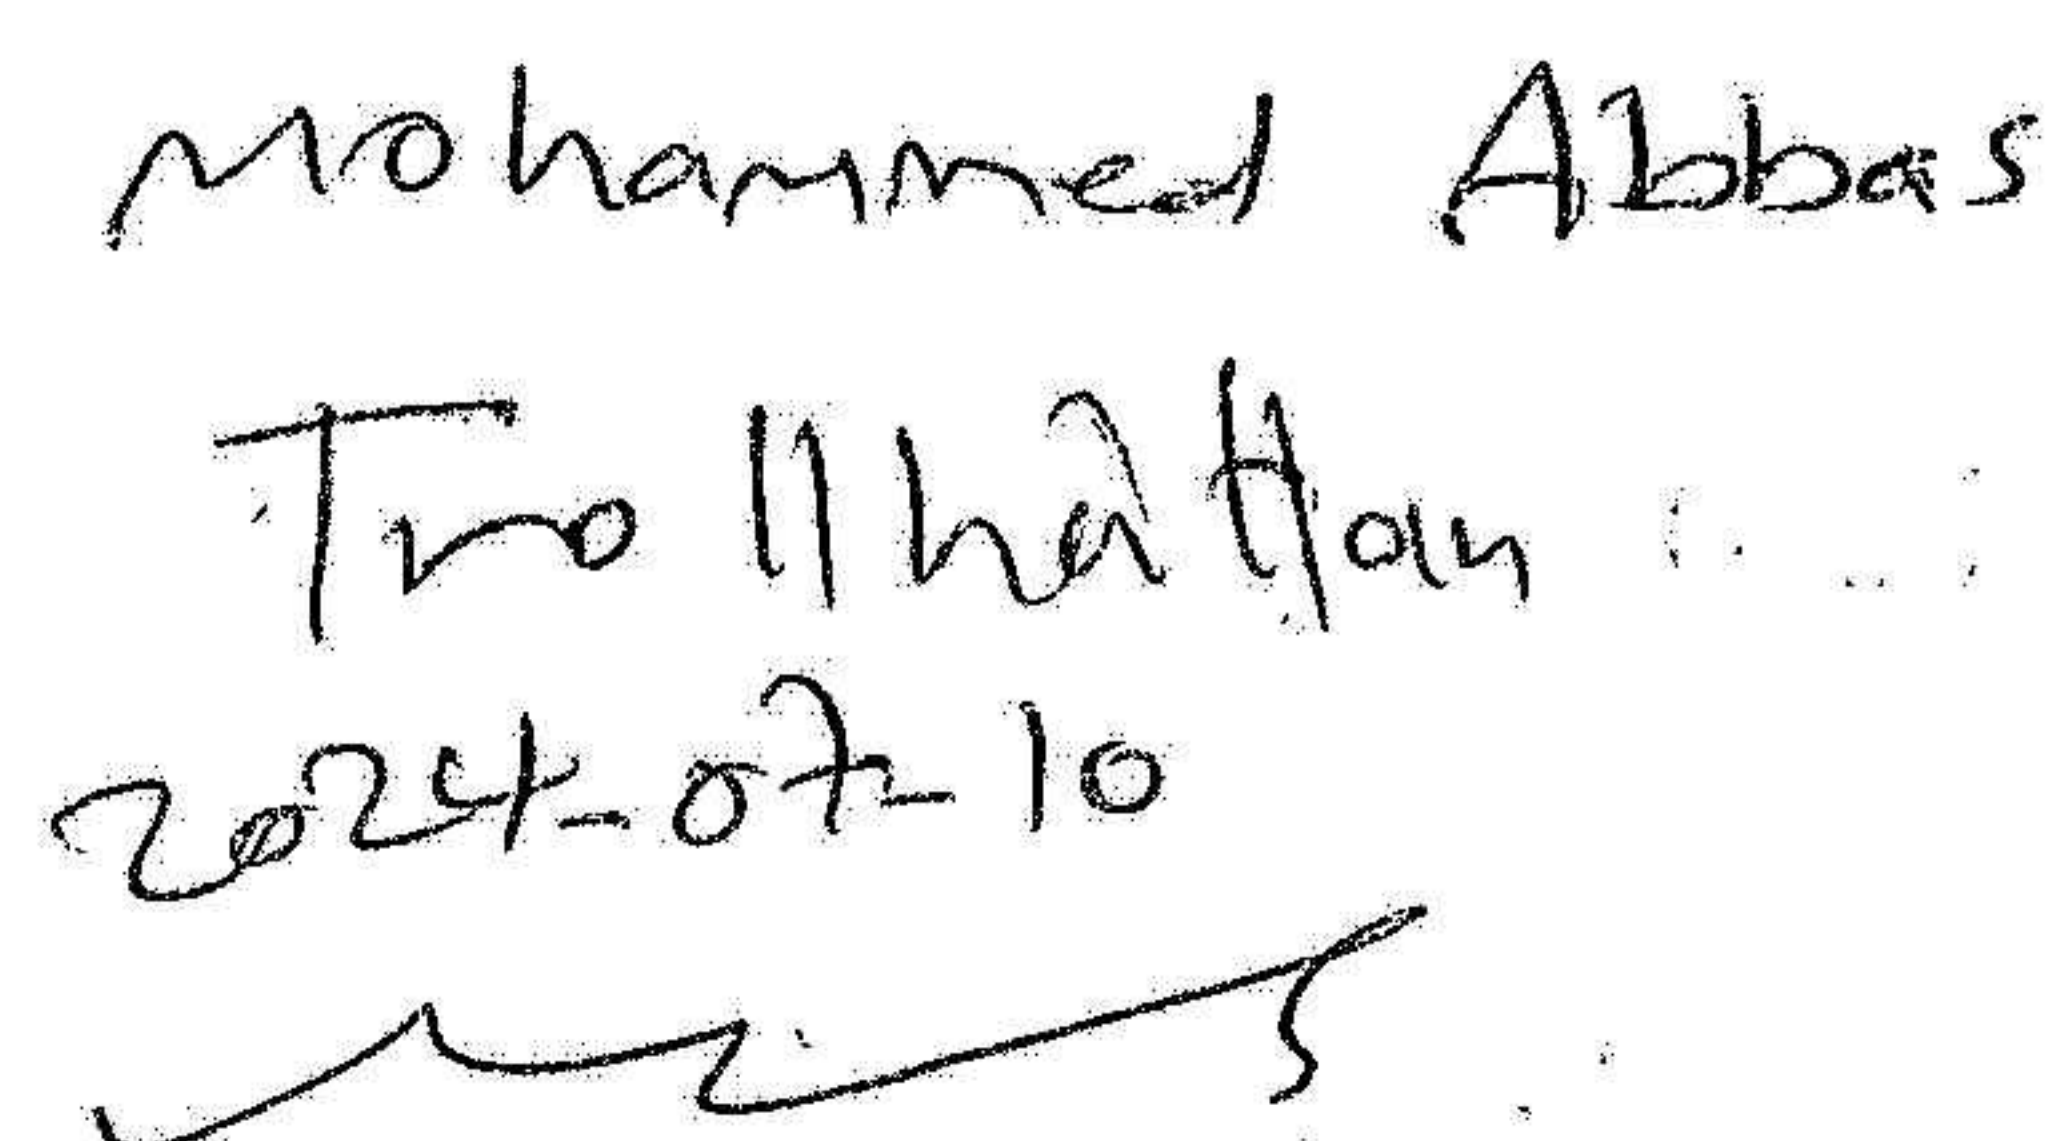 Mohammed Abbas
Trollhattan
2024-07-10